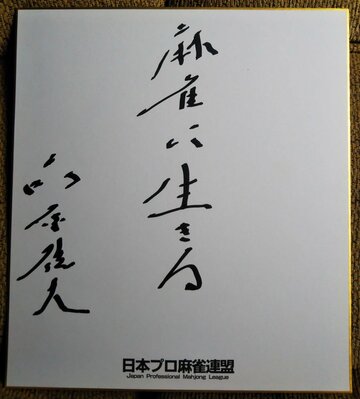 麻雀に生きる
前原雄大
日本プロ麻雀連盟
Japan Professional Mahjong League